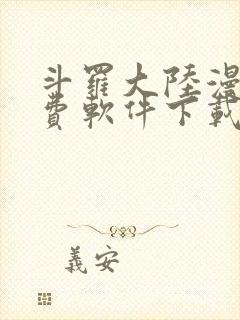 斗羅大陸漫
費軟件下載
義安